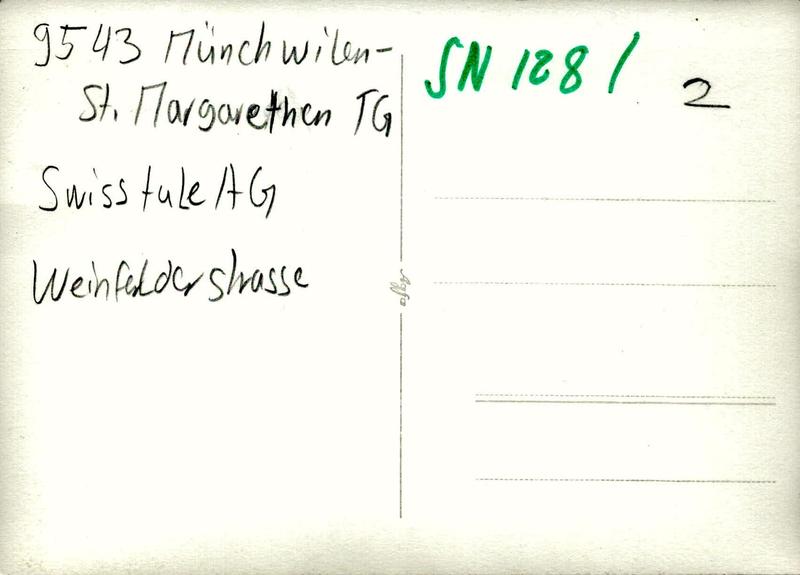 9543 Münchwilen-
St. Margarethen TG
Swisstule AG
Weinfelderstrasse
SN 128 /
2
Agfa